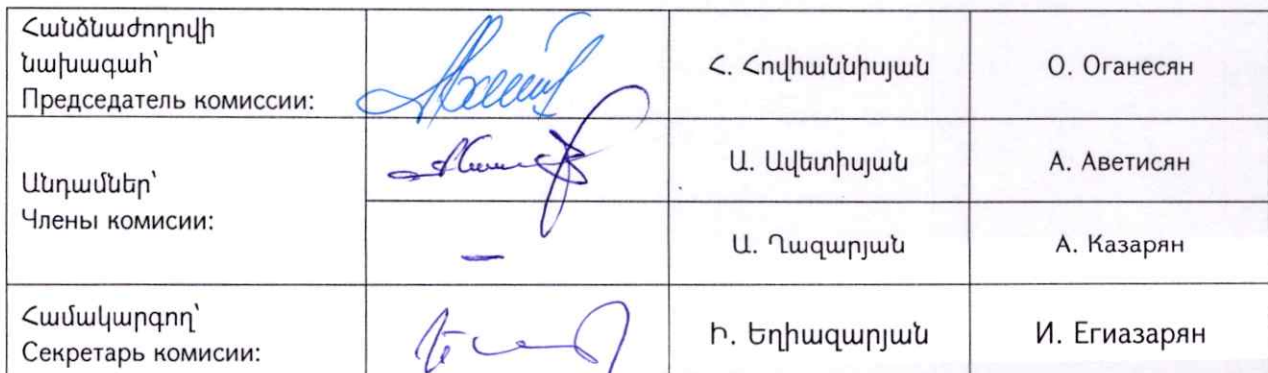 Հանձնաժողովի
նախագահ՝
Председатель комиссии:
Հ. Հովհաննիսյան
О. Оганесян
Անդամներ՝
Члены комисии:
Ա. Ավետիսյան
А. Аветисян
Ա. Ղազարյան
А. Казарян
Համակարգող՝
Секретарь комисии:
Ի. Եղիազարյան
И. Егиазарян